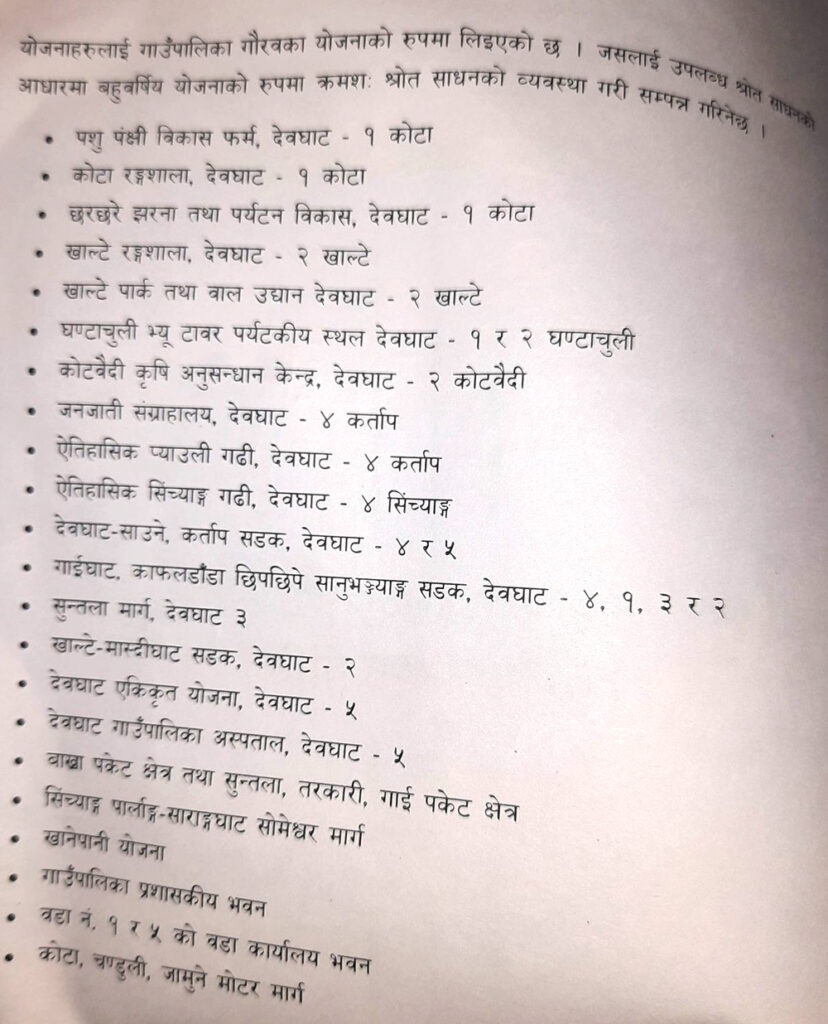 योजनाहरुलाई गाउँपालिका गौरवका योजनाको रुपमा लिइएको छ । जसलाई उपलब्ध श्रोत साधनको
आधारमा बहुवर्षिय योजनाको रुपमा क्रमशः श्रोत साधनको व्यवस्था गरी सम्पन्न गरिनेछ ।
• पशु पंक्षी विकास फर्म, देवघाट - १ कोटा
• कोटा रङ्गशाला, देवघाट - १ कोटा
• छरछरे झरना तथा पर्यटन विकास, देवघाट - १ कोटा
• खाल्टे रङ्गशाला, देवघाट - २ खाल्टे
• खाल्टे पार्क तथा वाल उद्यान देवघाट - २ खाल्टे
• घण्टाचुली भ्यू टावर पर्यटकीय स्थल देवघाट - १ र २ घण्टाचुली
• कोटवैदी कृषि अनुसन्धान केन्द्र, देवघाट - २ कोटवैदी
• जनजाती संग्राहालय, देवघाट - ४ कर्ताप
• ऐतिहासिक प्याउली गढी, देवघाट - ४ कर्ताप
• ऐतिहासिक सिंच्याङ्ग गढी, देवघाट - ४ सिंच्याङ्ग
• देवघाट-साउने, कर्ताप सडक, देवघाट - ४ र ५
• गाईघाट, काफलडाँडा छिपछिपे सानुभञ्ज्याङ्ग सडक, देवघाट - ४, १, ३ र २
• सुन्तला मार्ग, देवघाट ३
• खाल्टे-मास्दीघाट सडक, देवघाट - २
• देवघाट एकिकृत योजना, देवघाट - ५
• देवघाट गाउँपालिका अस्पताल, देवघाट - ५
• वाख्रा पकेट क्षेत्र तथा सुन्तला, तरकारी, गाई पकेट क्षेत्र
• सिंच्याङ्ग पार्लाङ्ग-साराङ्गघाट सोमेश्वर मार्ग
• खानेपानी योजना
• गाउँपालिका प्रशासकीय भवन
• वडा नं. १ र ५ को वडा कार्यालय भवन
• कोटा, चण्डुली, जामुने मोटर मार्ग